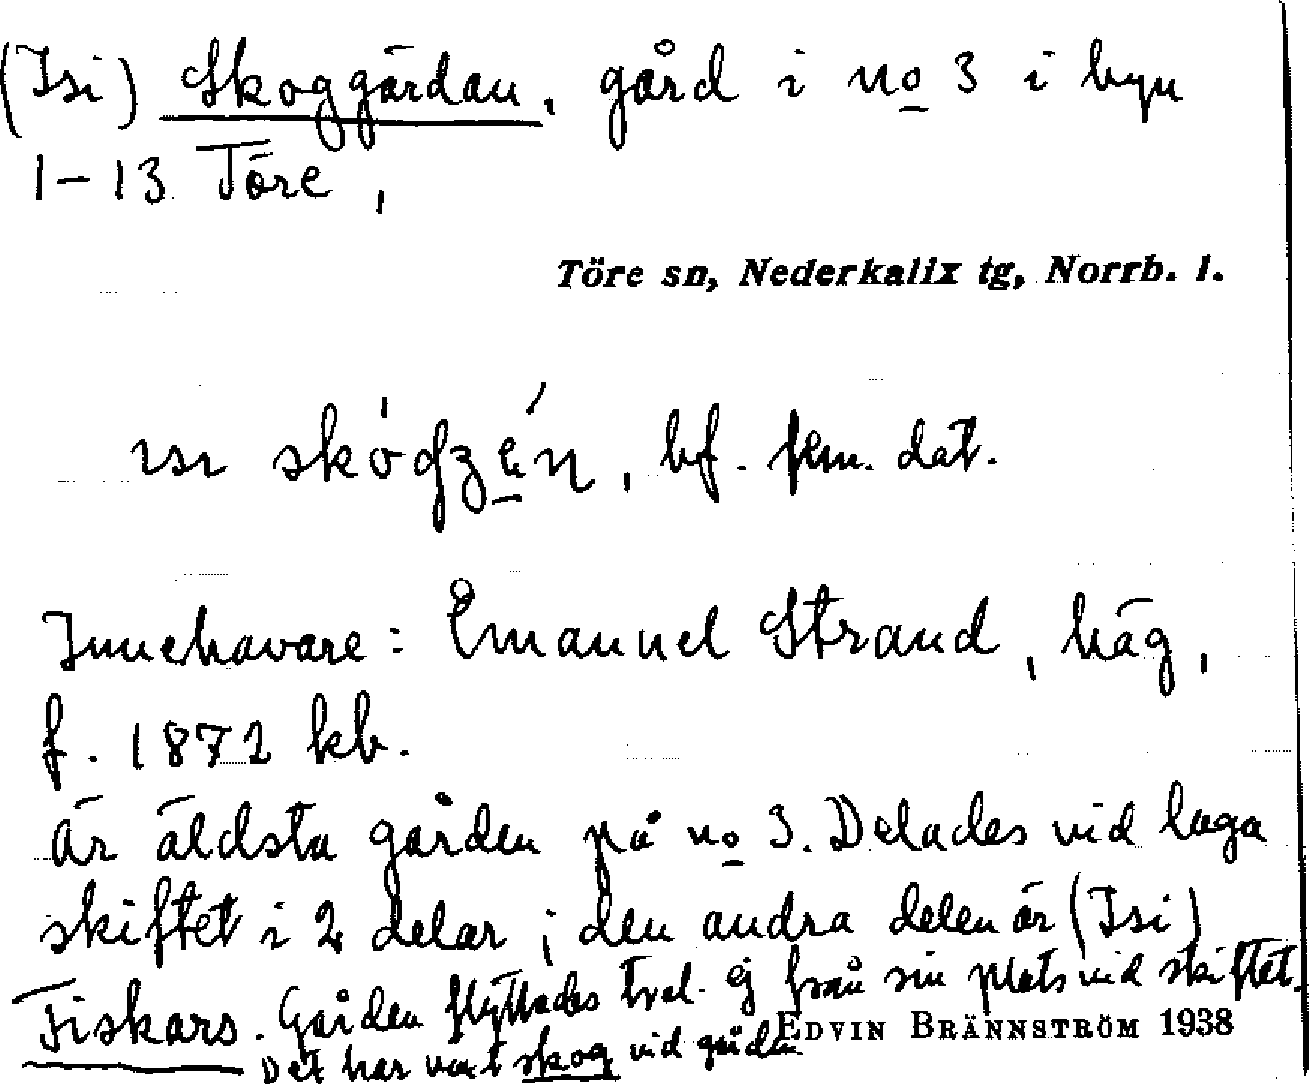 (Isi) Skoggärdan, gård i no 3 i byn
1-13 Töre,
Töre sn, Nederkalix tg, Norrb. l.
ɪsɪ skógzén, bf. fem. dat.
Innehavare: Emanuel Strand, häg,
f. 1872 kb.
Är äldsta gården på no 3. Delades vid laga
skiftet i 2 delar; den andra delen är (Isi)
Fiskars. Gården flyttades trol. ej från sin plats vid skiftet.
Det har varit skog vid gården
EDVIN BRÄNNSTRÖM 1938